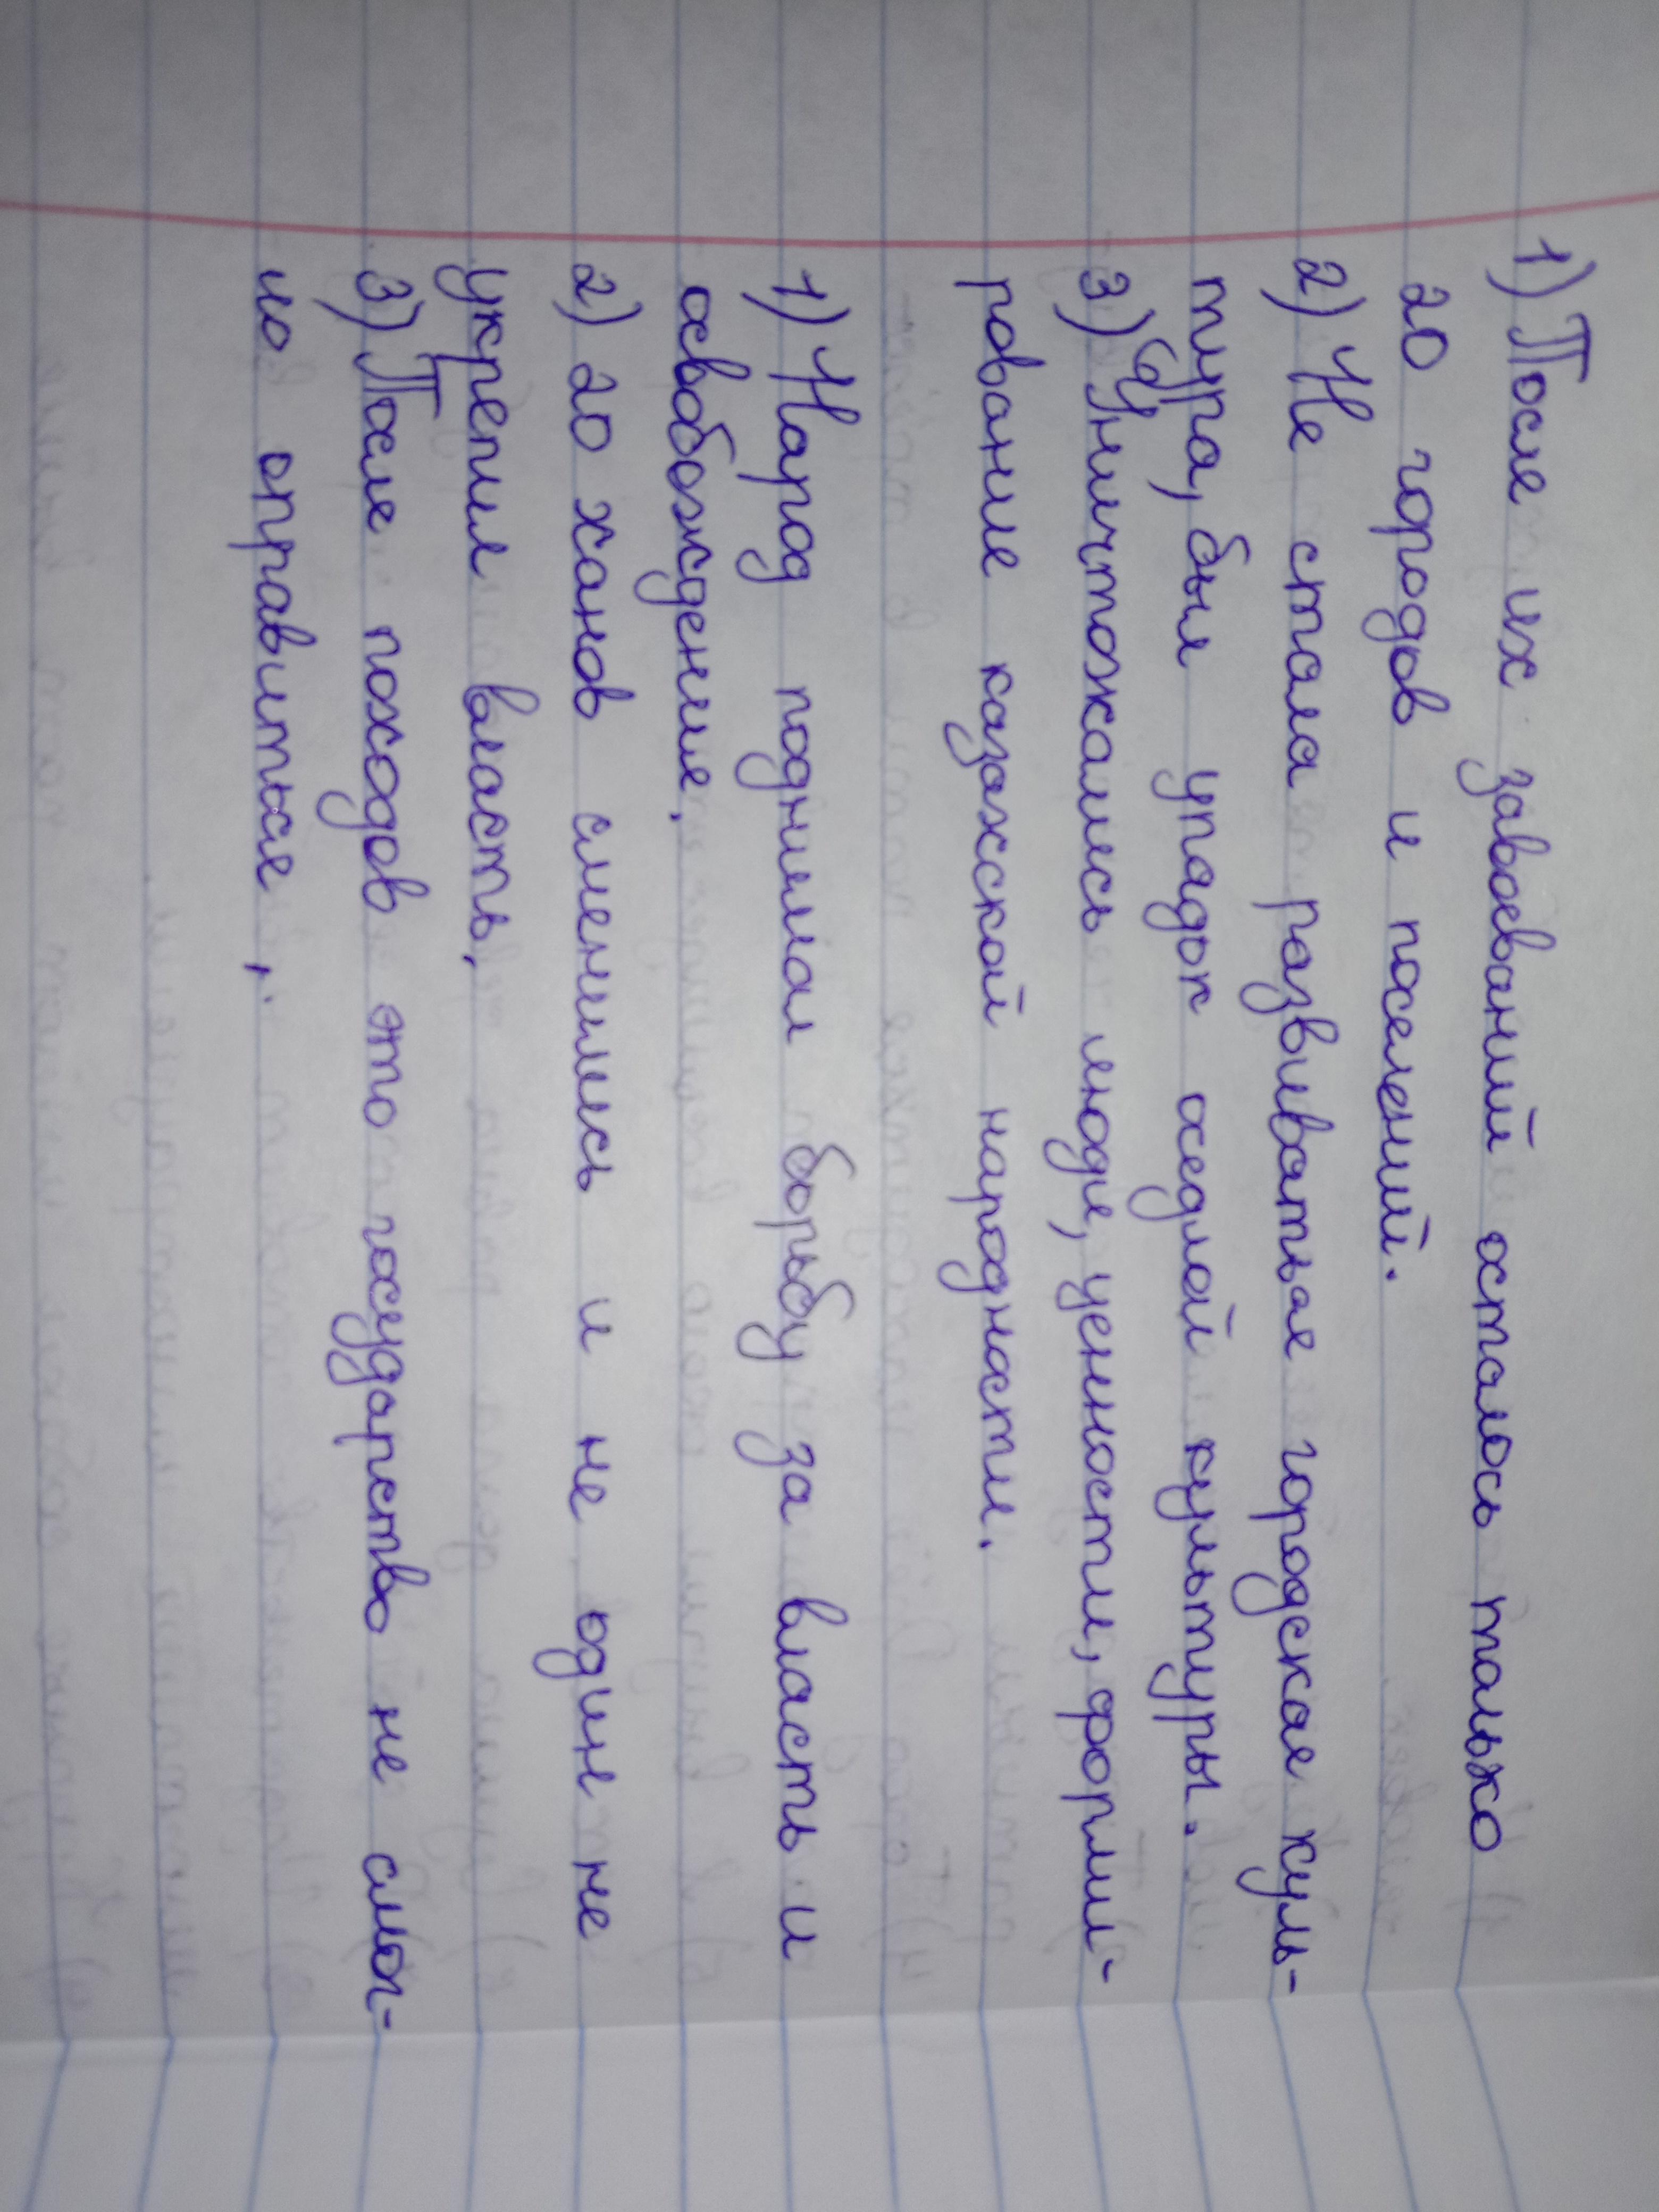 1) После их завоеваний осталось только
20 городов и поселений.
2) Не стала развиваться городская куль-
тура, был упадок оседлой культуры.
3) Уничтожались люди, ценности, форми-
рование казахской народности.
1) Народ поднимал борьбу за власть и
освобождение.
2) 20 ханов сменились и не один не
укрепил власть,
3) После походов это государство не смог-
ло оправиться,